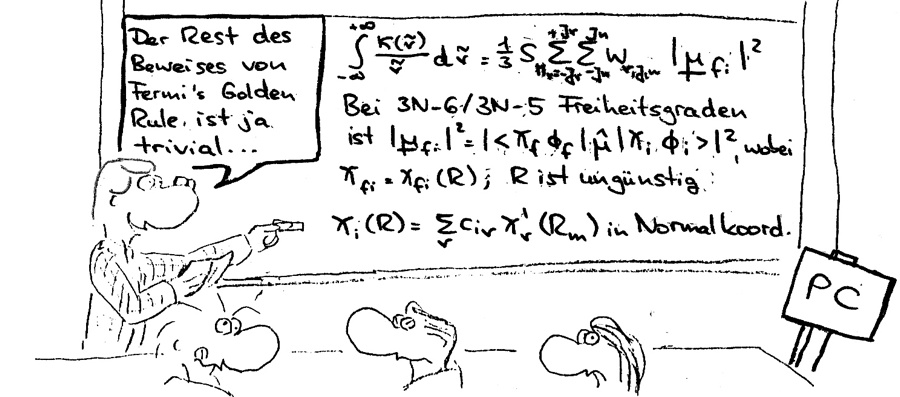 Der Rest des
Beweises von
Fermi's Golden
Rule, ist ja
trivial...
+∞ ∫ -∞ K(ṽ)/ṽ dṽ = 1/3 S Σ Σ W |μ_fi|²
Bei 3N-6/3N-5 Freiheitsgraden
ist |μ_fi|² = |<χ_f ϕ_f|μ̂|χ_i ϕ_i>|², wobei
χ_fi = χ_fi(R); R ist ungünstig:
χ_i(R) = Σ_v c_iv χ'_v(R_m) in Normalkoord.
PC